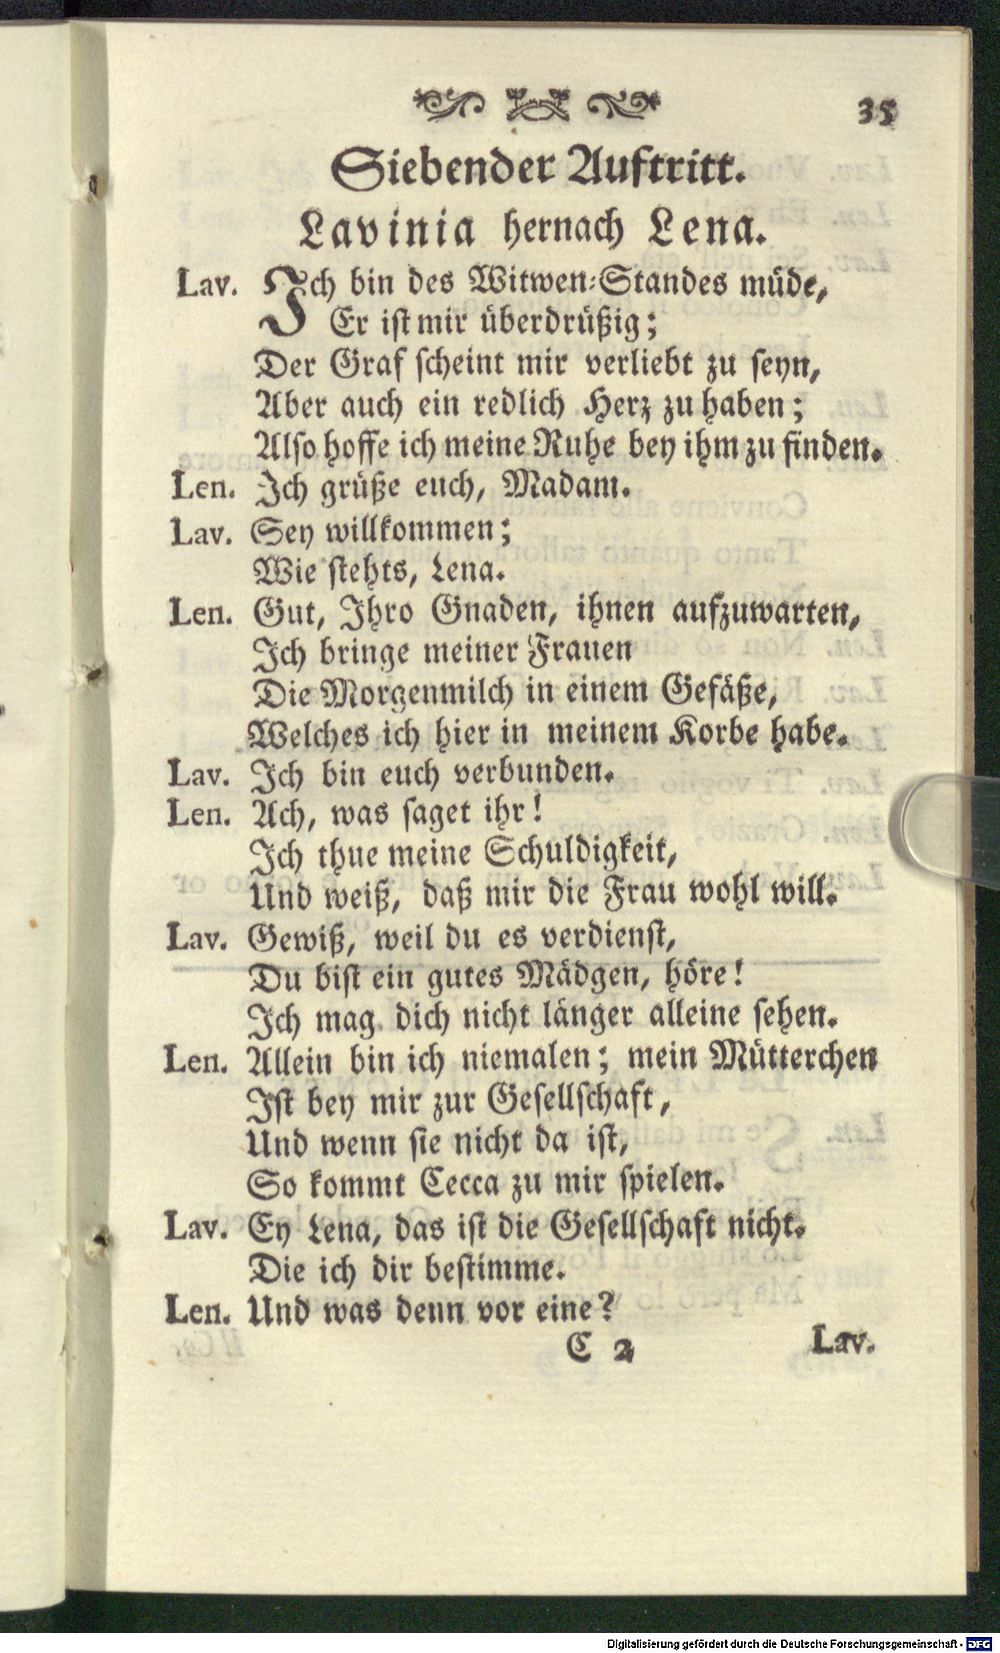 35
Siebender Auftritt.
Lavinia hernach Lena.
Lav. Ich bin des Witwen-Standes müde,
Er ist mir überdrüßig;
Der Graf scheint mir verliebt zu seyn,
Aber auch ein redlich Herz zu haben;
Also hoffe ich meine Ruhe bey ihm zu finden.
Len. Ich grüße euch, Madam.
Lav. Sey willkommen;
Wie stehts, Lena.
Len. Gut, Ihro Gnaden, ihnen aufzuwarten,
Ich bringe meiner Frauen
Die Morgenmilch in einem Gefäße,
Welches ich hier in meinem Korbe habe.
Lav. Ich bin euch verbunden.
Len. Ach, was saget ihr!
Ich thue meine Schuldigkeit,
Und weiß, daß mir die Frau wohl will.
Lav. Gewiß, weil du es verdienst,
Du bist ein gutes Mädgen, höre!
Ich mag dich nicht länger alleine sehen.
Len. Allein bin ich niemalen; mein Mütterchen
Ist bey mir zur Gesellschaft,
Und wenn sie nicht da ist,
So kommt Cecca zu mir spielen.
Lav. Ey Lena, das ist die Gesellschaft nicht.
Die ich dir bestimme.
Len. Und was denn vor eine?
C 2 Lav.
Digitalisierung gefördert durch die Deutsche Forschungsgemeinschaft - DFG